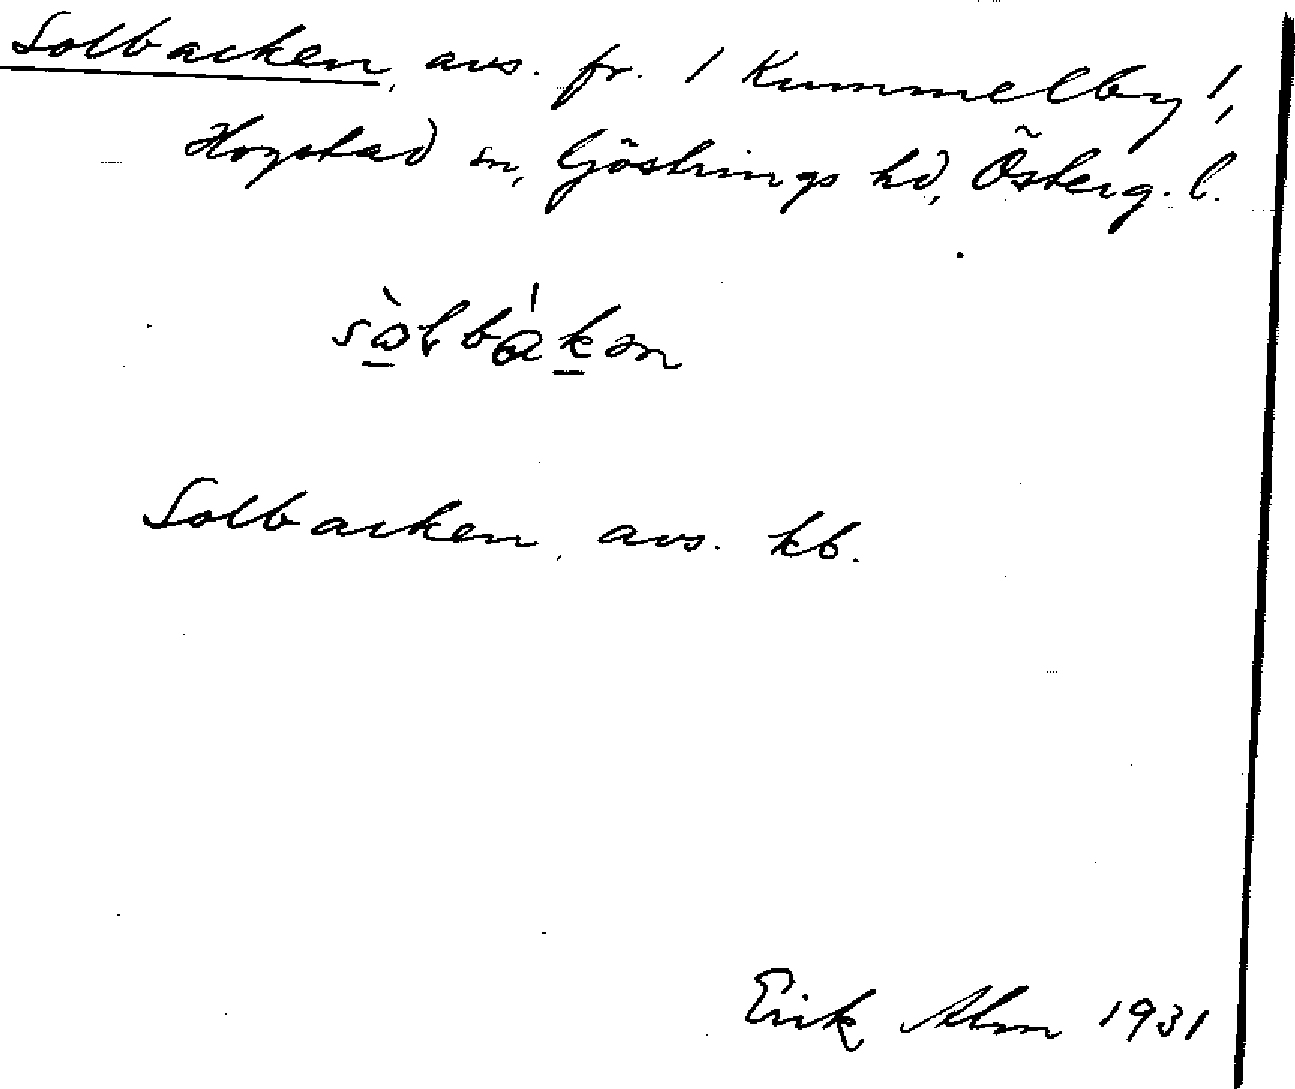 Solbacken, avs. fr. / Kummelby /,
Hogstad sn, Göstrings hd, Österg. l.
Solbacken, avs. kb.
Erik Alm 1931